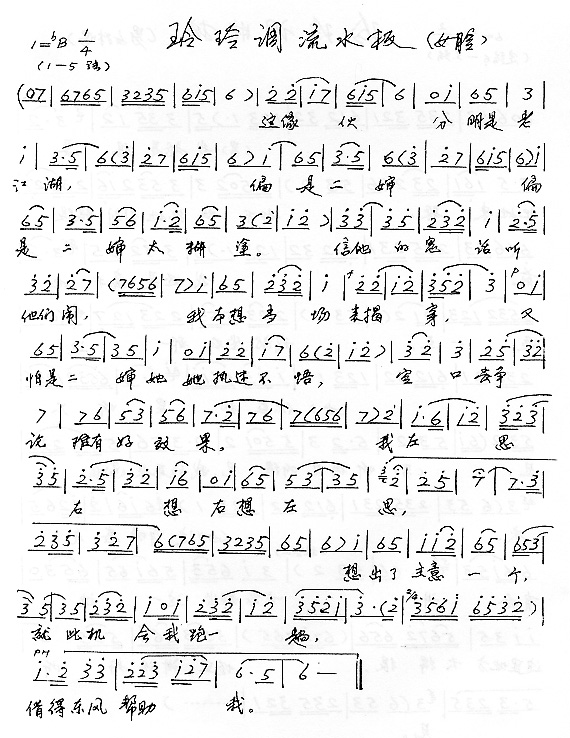 1=♭B 1/4 玲玲调流水板(女腔)
(1-5弦)
(07 | 6765 | 3235 | 615 | 6 ) | 22 | 17 | 615 | 6 | 01 | 65 | 3 |
这像伙 分明是老
1 | 3·5 | 6(3 | 27 | 615 | 6) 1 | 65 | 3·5 | 6(3 | 27 | 615 | 6)1 |
江湖, 偏是二婶 偏
65 | 3·5 | 56 | 1·2 | 65 | 3(2 | 12 ) | 33 | 35 | 232 | 1 | 2·5 |
是二婶太糊涂。 信他的 话听
32 | 27 | (7656 | 7)1 | 65 | 232 | 1 | 22 | 12 | 352 | 3 | 01 |
他们闹, 我本想当场来揭穿, 又
65 | 3·5 | 35 | 1 | 01 | 22 | 17 | 6(2 | 12) | 32 | 3 | 25 | 32 |
怕是二婶她她执迷不悟, 空口
7 | 76 | 53 | 56 | 7·2 | 76 | 7(656 | 7)2 | 1·6 | 12 | 323 |
论难有好效果。 我左思
35 | 2·5 | 32 | 16 | 01 | 65 | 53 | 35 | 2 | 25 | 7 | 7·3 |
右想右想左思,
235 | 327 | 6(765 | 3235 | 65 | 6)1 | 65 | 112 | 65 | 653 |
想出了主意一个,
35 | 35 | 232 | 101 | 232 | 12 | 3521 | 3·(2 | 3561 6532) |
就此机会我跑一趟,
1·2 33 | 223 127 | 6·5 | 6 — ‖
借得东风帮助我。